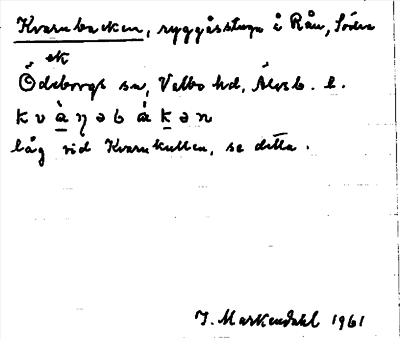 Kvarnbacken, ryggåsstuga å Rån, Södra
ek
Ödeborgs sn, Valbo hd, Älvsb. l.
kvàɳəbákən
låg vid Kvarnkullen, se detta.
J. Markendahl 1961